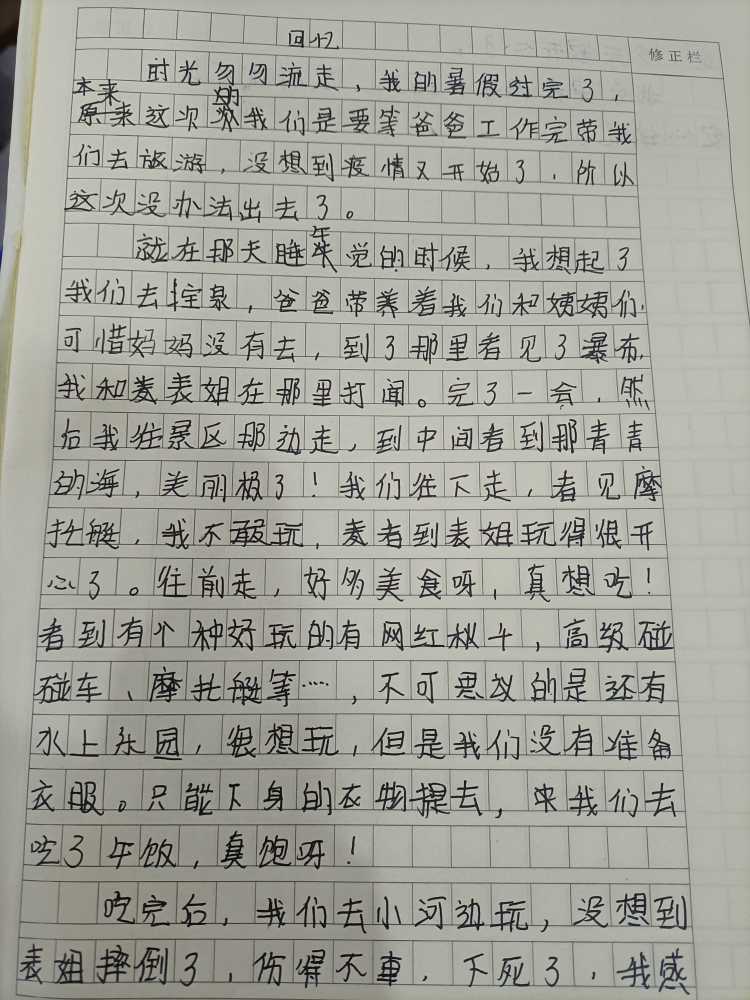 回忆
修正栏
时光匆匆流走，我的暑假过完了，
本来 的
原来这次我们是要等爸爸工作完带我
们去旅游，没想到疫情又开始了，所以
这次没办法出去了。
就在那天睡午觉的时候，我想起了
我们去宝泉，爸爸带着我们和姨姨们，
可惜妈妈没有去，到了那里看见了瀑布，
我和表姐在那里打闹。完了一会，然
后我往景区那边走，到中间看到那青青
的海，美丽极了！我们往下走，看见摩
托艇，我不敢玩，看到表姐玩得很开
心了。往前走，好多美食呀，真想吃！
看到有个种好玩的有网红秋千，高级碰
碰车、摩托艇等……，不可思议的是还有
水上乐园，很想玩，但是我们没有准备
衣服。只能下身的衣物提去，来我们去
吃了午饭，真饱呀！
吃完后，我们去小河边玩，没想到
表姐摔倒了，伤得不重，下死了，我感